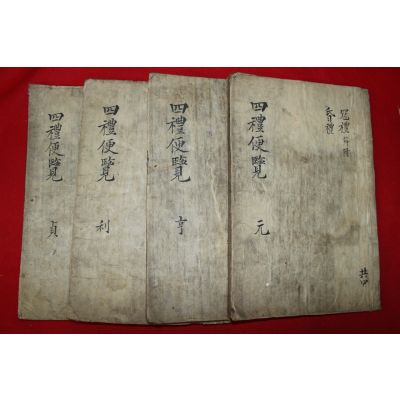 冠禮
昏禮
四禮便覽 元
共四
四禮便覽 亨
四禮便覽 利
四禮便覽 貞